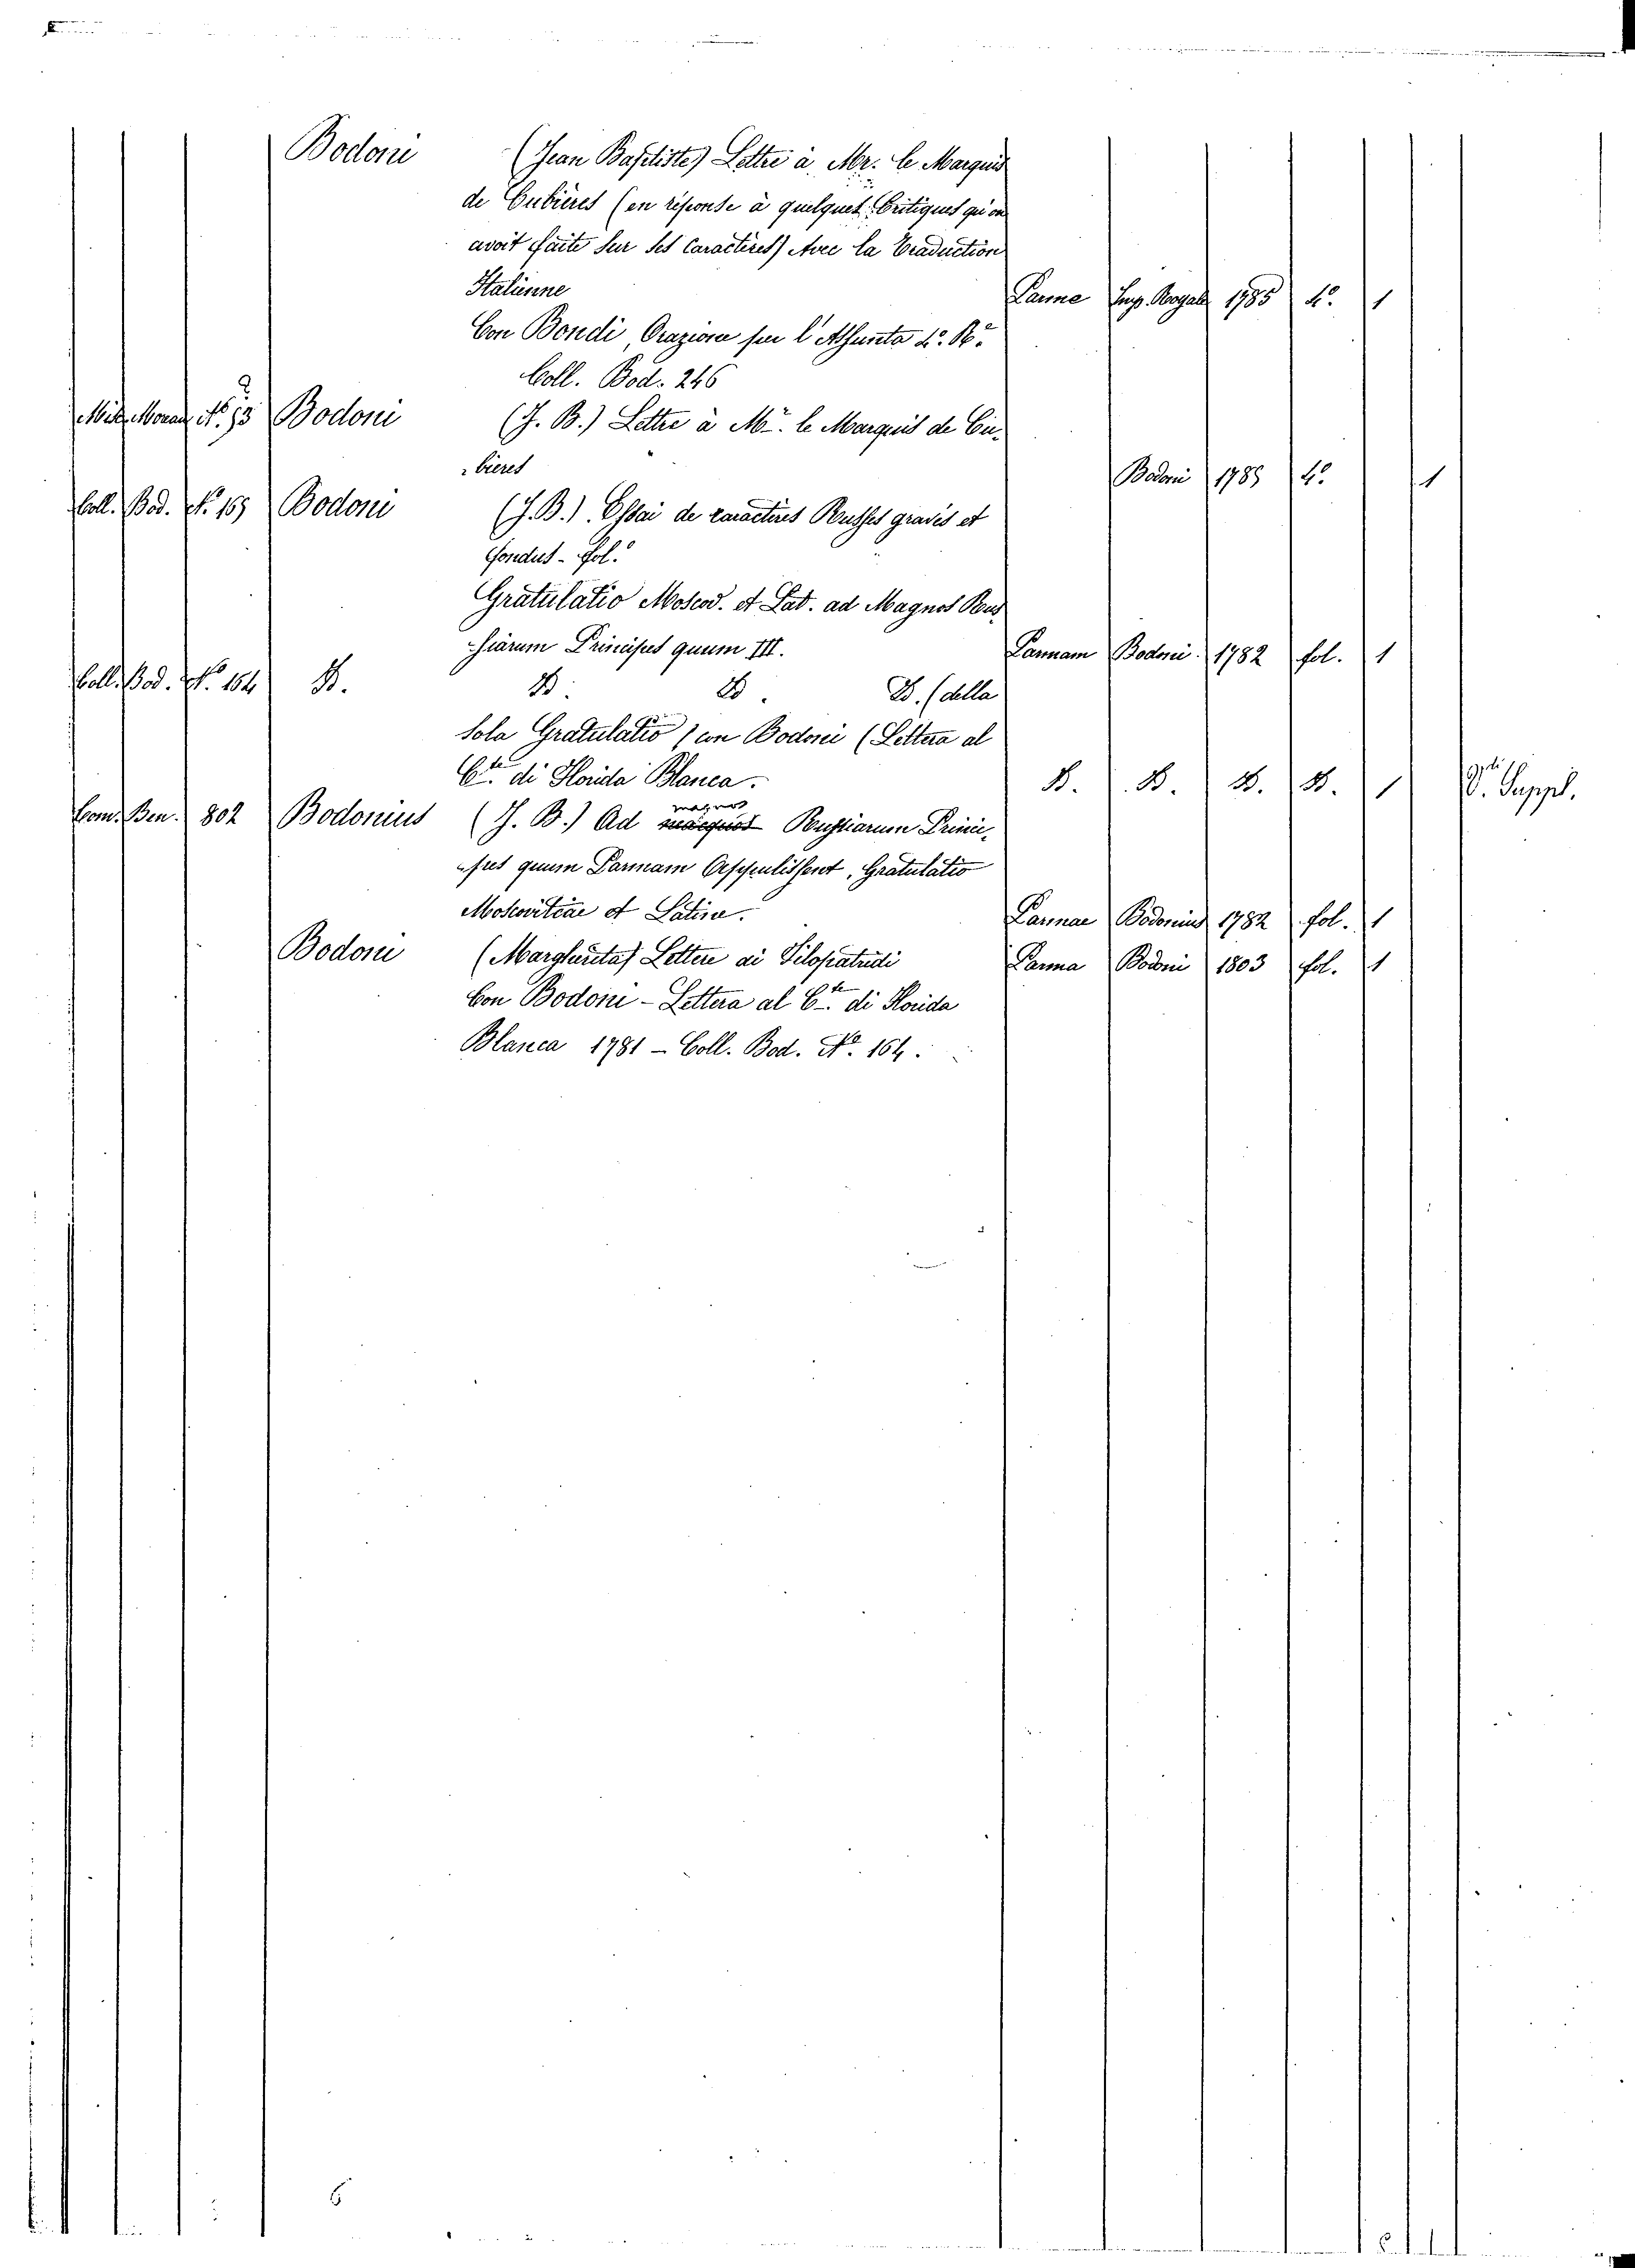 Bodoni (Jean Baptiste) Lettre à Mr. le Marquis
de Cubières (en réponse à quelques Critiques qu'on
avoit faite sur ses Caractères) Avec la Traduction
Italienne Parme Imp. Royale 1785 4.º 1
Con Bondi, Orazione per l'Assunta
Coll. Bod. 246
Nº 93 Bodoni (J. B.) Lettre à Mr. le Marquis de Cu-
bieres Bodoni 1785 4.º 1
Coll. Bod. Nº 165 Bodoni (J. B.) Essai de caractères Russes gravés et
fondus - fol.º
Gratulatio Moscov. et Lat. ad Magnos Rus-
siarum Principes quum III. Parmam Bodoni 1782 fol. 1
Coll. Bod. Nº 164 D. D. D. D. (della
sola Gratulatio) con Bodoni (Lettera al
C.te di Florida Blanca. D. D. D. D. 1 V. Suppl.
Com. Ben. 802 Bodonius (J. B.) Ad magnos Russiarum Princi-
pes quum Parmam Appulissent, Gratulatio
Moscovitae et Latine. Parmae Bodonius 1782 fol. 1
Bodoni (Margherita) Lettere ai Filopatridi Parma Bodoni 1803 fol. 1
Con Bodoni - Lettera al C.te di Florida
Blanca 1781 - Coll. Bod. Nº. 164.